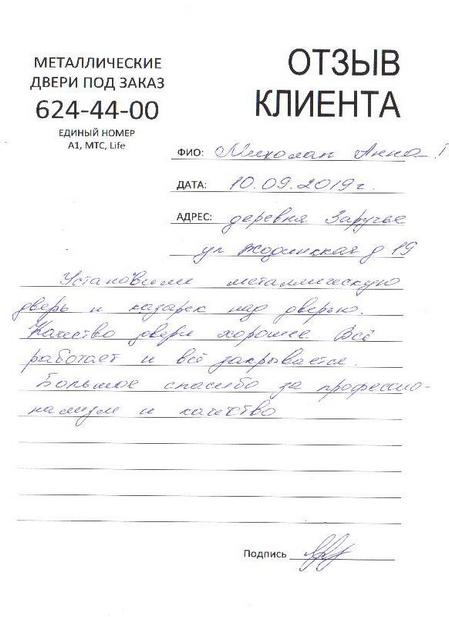 МЕТАЛЛИЧЕСКИЕ
ДВЕРИ ПОД ЗАКАЗ
624-44-00
ЕДИНЫЙ НОМЕР
А1, МТС, Life
ОТЗЫВ
КЛИЕНТА
ФИО: Михолап Анна
ДАТА: 10.09.2019г.
АДРЕС: деревня Заручье
ул Жодинская д 19
Установили металлическую
дверь и казарек над дверью.
Качество двери хорошее. Всё
работает и всё закрывается.
Большое спасибо за професио-
нализм и качество
Подпись